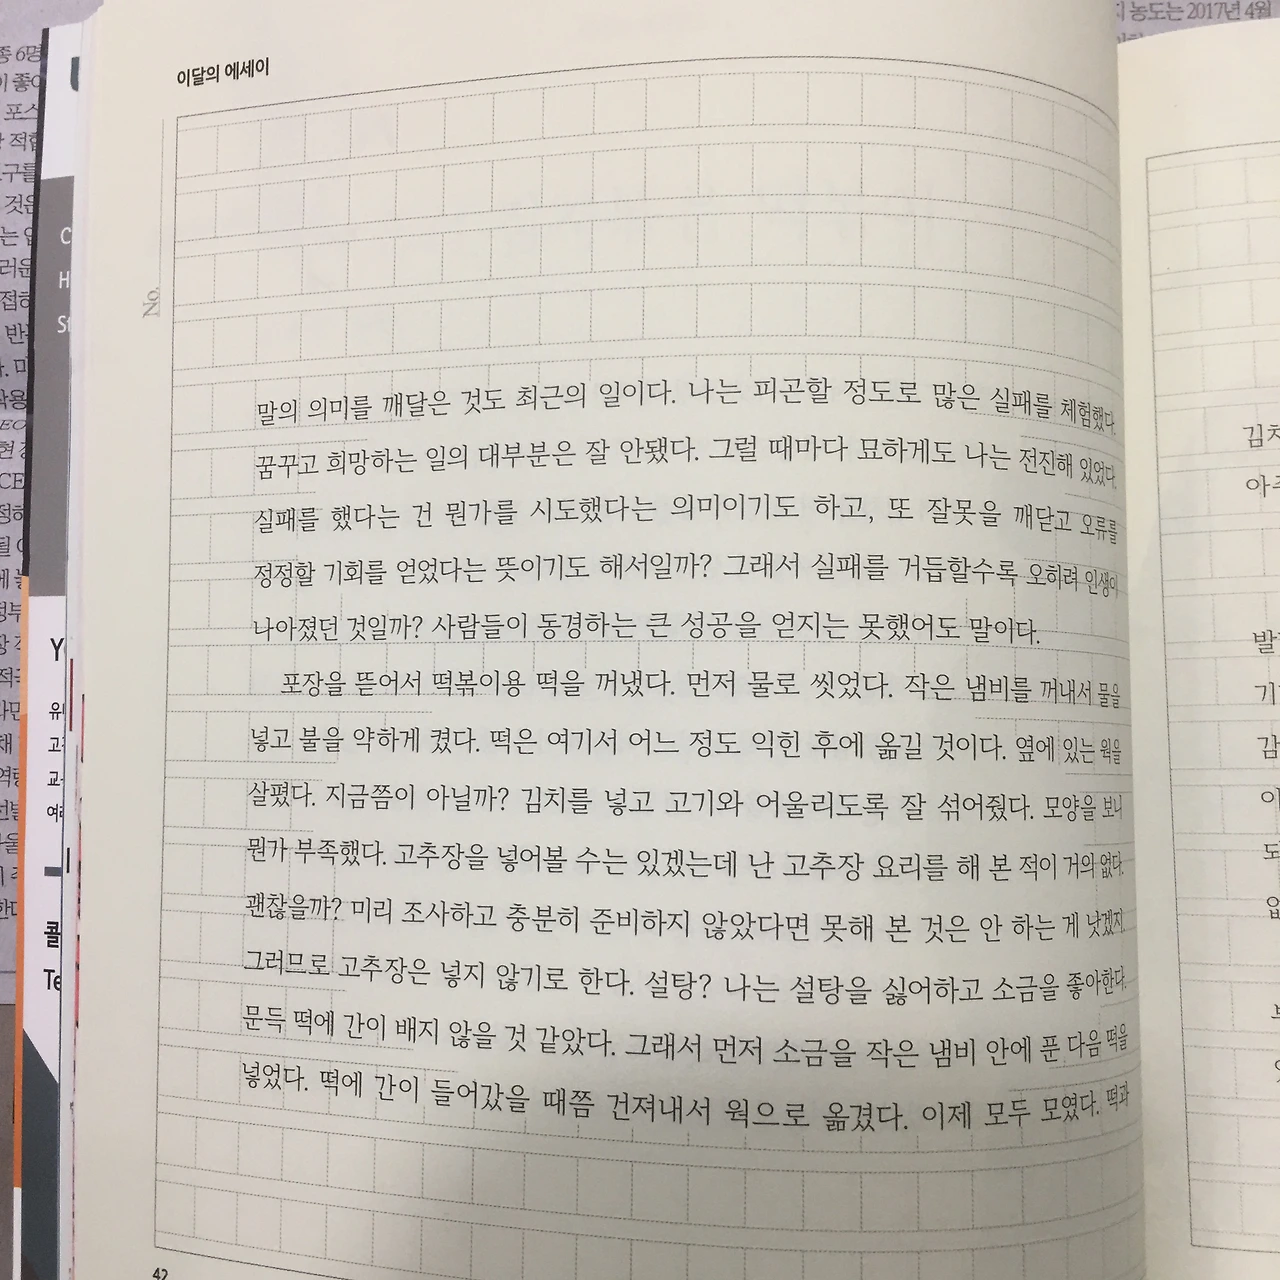 이달의 에세이
No.
말의 의미를 깨달은 것도 최근의 일이다. 나는 피곤할 정도로 많은 실패를 체험했다.
꿈꾸고 희망하는 일의 대부분은 잘 안됐다. 그럴 때마다 묘하게도 나는 전진해 있었다.
실패를 했다는 건 뭔가를 시도했다는 의미이기도 하고, 또 잘못을 깨닫고 오류를
정정할 기회를 얻었다는 뜻이기도 해서일까? 그래서 실패를 거듭할수록 오히려 인생이
나아졌던 것일까? 사람들이 동경하는 큰 성공을 얻지는 못했어도 말이다.
포장을 뜯어서 떡볶이용 떡을 꺼냈다. 먼저 물로 씻었다. 작은 냄비를 꺼내서 물을
넣고 불을 약하게 켰다. 떡은 여기서 어느 정도 익힌 후에 옮길 것이다. 옆에 있는 웍을
살폈다. 지금쯤이 아닐까? 김치를 넣고 고기와 어울리도록 잘 섞어줬다. 모양을 보니
뭔가 부족했다. 고추장을 넣어볼 수는 있겠는데 난 고추장 요리를 해 본 적이 거의 없다.
괜찮을까? 미리 조사하고 충분히 준비하지 않았다면 못해 본 것은 안 하는 게 낫겠지.
그러므로 고추장은 넣지 않기로 한다. 설탕? 나는 설탕을 싫어하고 소금을 좋아한다.
문득 떡에 간이 배지 않을 것 같았다. 그래서 먼저 소금을 작은 냄비 안에 푼 다음 떡을
넣었다. 떡에 간이 들어갔을 때쯤 건져내서 웍으로 옮겼다. 이제 모두 모였다. 떡과
42
농도는 2017년 4월